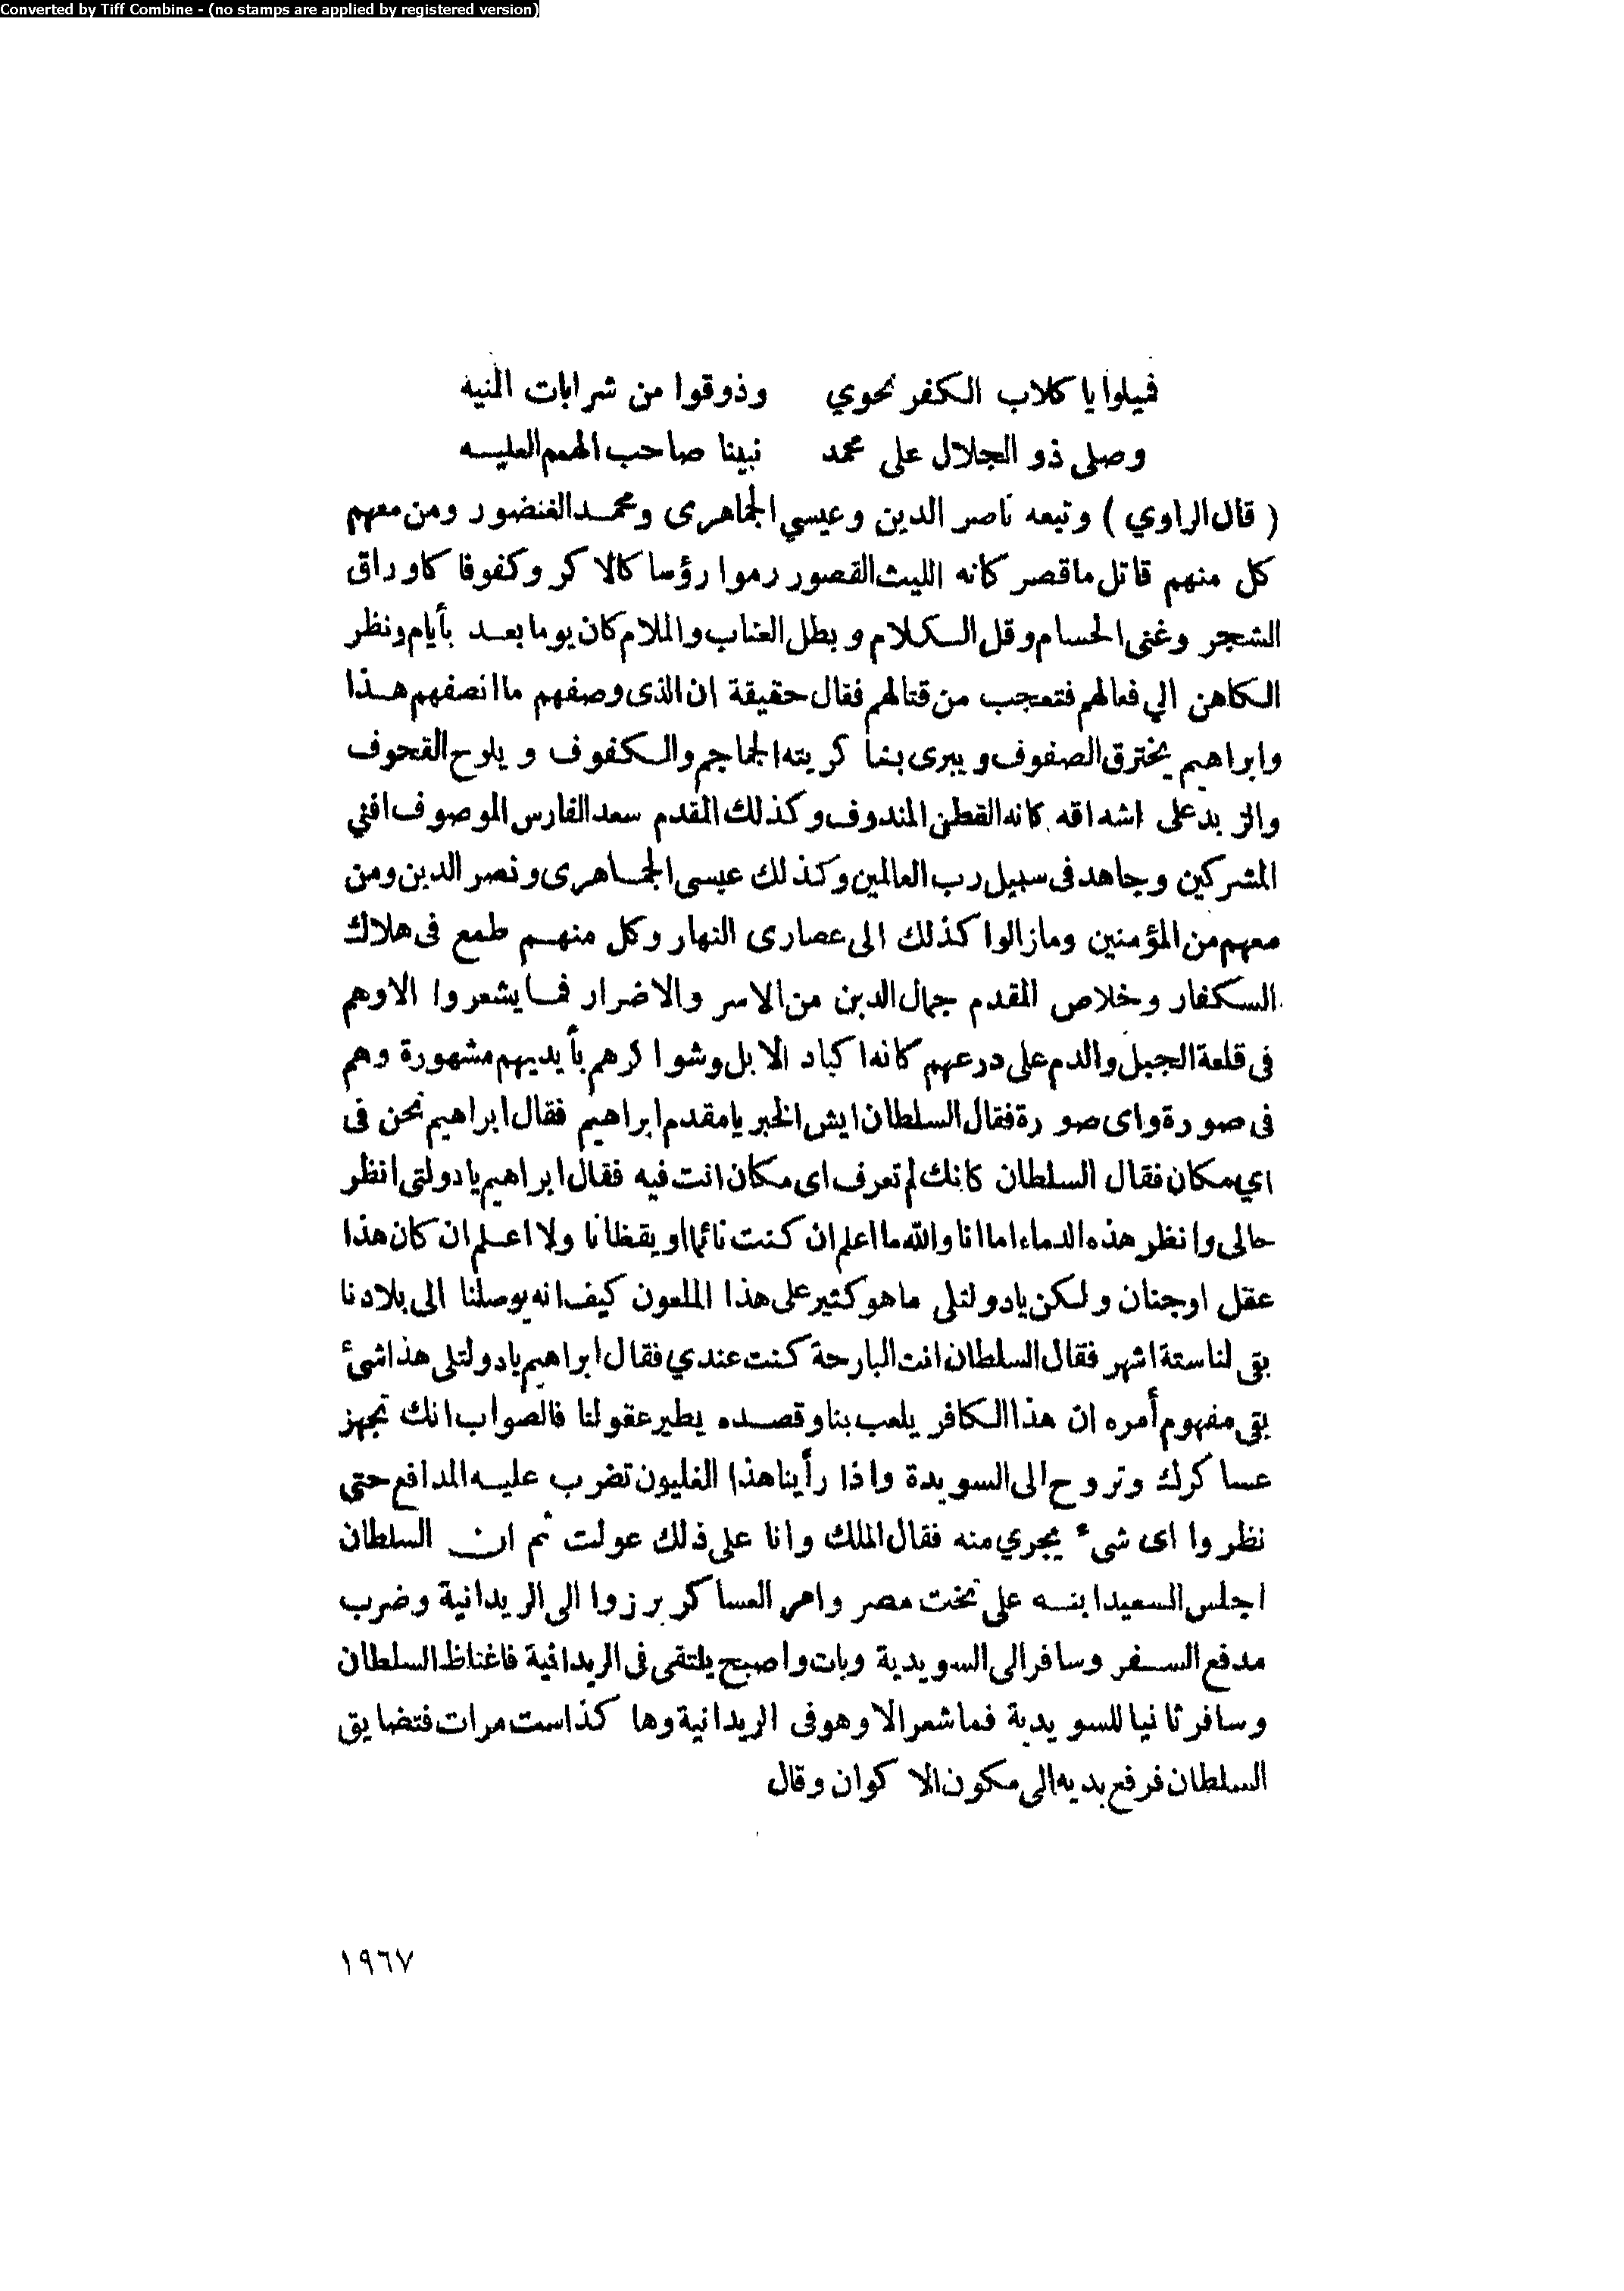 Converted by Tiff Combine - (no stamps are applied by registered version)
فميلوا يا كلاب الكفر نحوي وذوقوا من شرابات المنيه
وصلى ذو الجلال على محمد نبينا صاحب الهمم العليه
( قال الراوي ) وتبعه ناصر الدين وعيسي الجماهرى ومحمد الغنضور ومن معهم
كل منهم قاتل ماقصر كانه الليث القصور رموا رؤسا كالاكر وكفوفا كاوراق
الشجر وغنى الحسام وقل الكلام وبطل العتاب والملام كان يوما بعد بأيام ونظر
الكاهن الي فعالهم فتعجب من قتالهم فقال حقيقة ان الذى وصفهم ماانصفهم هذا
وابراهيم يخترق الصفوف ويبرى بشاكريته الجماجم والكفوف ويلوح القحوف
والزبد على اشداقه كانه القطن المندوف وكذلك المقدم سعد الفارس الموصوف افني
المشركين وجاهد فى سبيل رب العالمين وكذلك عيسى الجماهرى ونصر الدين ومن
معهم من المؤمنين ومازالوا كذلك الى عصارى النهار وكل منهم طمع فى هلاك
الكفار وخلاص المقدم جمال الدين من الاسر والاضرار فما يشعروا الاوهم
فى قلعة الجبل والدم على درعهم كانه اكباد الابل وشواكرهم بأيديهم مشهورة وهم
فى صورة واى صورة فقال السلطان ايش الخبر يامقدم ابراهيم فقال ابراهيم نحن فى
اي مكان فقال السلطان كانك لم تعرف اى مكان انت فيه فقال ابراهيم يادولتى انظر
حالى وانظر هذه الدماء اما انا والله ما اعلم ان كنت نائما او يقظانا ولا اعلم ان كان هذا
عقل اوجنان ولكن يادولتلى ماهو كثير على هذا الملعون كيف انه يوصلنا الى بلادنا
بقى لنا ستة اشهر فقال السلطان انت البارحة كنت عندي فقال ابراهيم يادولتلى هذا شئ
بقى مفهوم أمره ان هذا الكافر يلعب بنا وقصده يطير عقولنا فالصواب انك تجهز
عساكرك وتروح الى السويدة واذا رأينا هذا الغليون تضرب عليه المدافع حتى
نظروا اى شىء يجري منه فقال الملك وانا على ذلك عولت ثم ان السلطان
اجلس السعيد ابنه على تخت مصر وامر العساكر برزوا الى الريدانية وضرب
مدفع السفر وسافر الى السويدية وبات واصبح يلتقى فى الريدانية فاغتاظ السلطان
وسافر ثانيا للسويدية فما شعر الا وهو فى الريدانية وهاكذا ست مرات فتضايق
السلطان فرفع يديه الى مكون الاكوان وقال
١٩٦٧